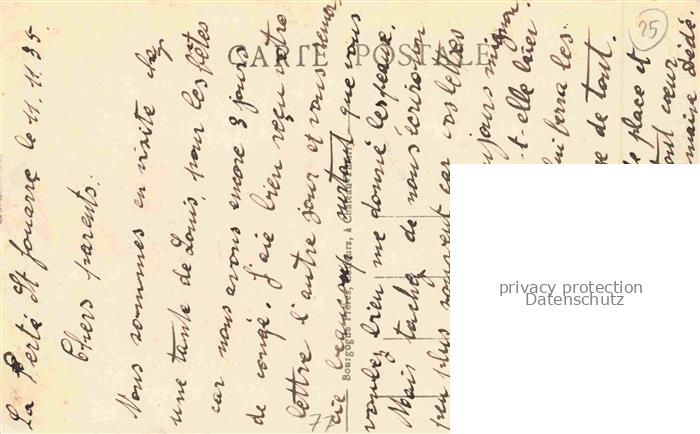 CARTE POSTALE
25
La Ferté St Jouarre le 11.11.35.
Chers parents.
Nous sommes en visite chez
une tante de Louis, pour les fêtes
car nous avons encore 3 jours
de congé. J'aie bien reçu votre
lettre l'autre jour et vous remer-
cie beaucoup surtout que vous
voulez bien me donné les peaux.
Mais tachez de nous écrire un
peu plus souvent car vos lettres
ujours
t-elle
uiberra les
e de tout.
place et
tout cœur
Didé.
Bourgogne Frères, à Château-Thierry
77
privacy protection
Datenschutz